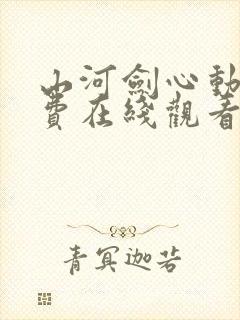 山河劍心動
費在綫觀看
青冥迦若